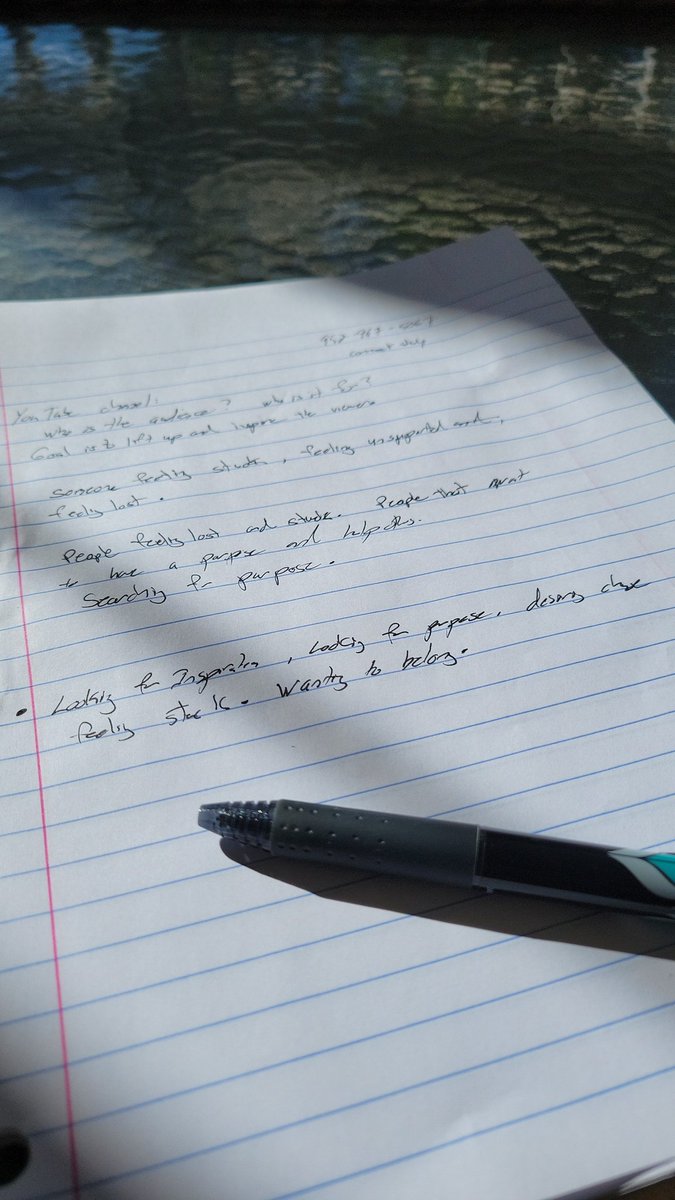 YouTube channel:
who is the audience? who is it for?
Goal is to lift up and inspire the viewers
someone feeling stuck, feeling unsupported and,
feeling lost.
People feeling lost and stuck. People that want
to have a purpose and help others.
Searching for purpose.
• Looking for Inspiration, Looking for purpose, desiring change
feeling stuck. Wanting to belong.